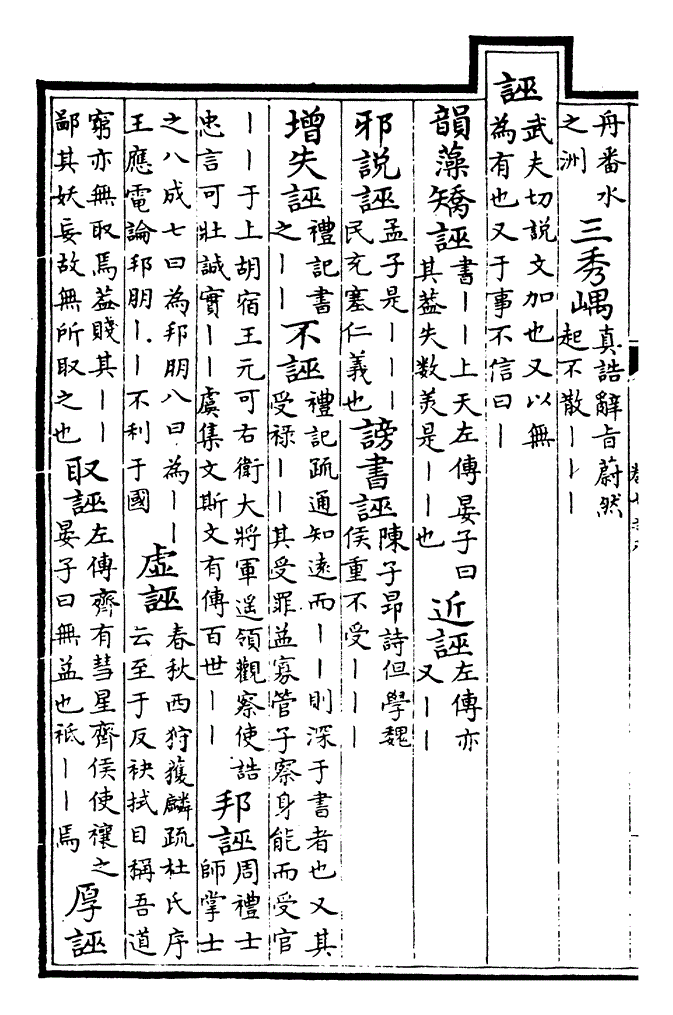 舟番水
之洲
三秀嵎
真誥辭旨蔚然
起不散丨丨丨
誣
武夫切說文加也又以無
為有也又于事不信曰丨
韻藻矯誣
書丨丨上天左傳晏子曰
其葢失數美是丨丨也
近誣
左傳亦
又丨丨
邪說誣
孟子是丨丨丨
民充塞仁義也
謗書誣
陳子昂詩但學魏
侯重不受丨丨丨
增失誣
禮記書
之丨丨
不誣
禮記疏通知遠而丨丨則深于書者也又其
受祿丨丨其受罪益寡管子察身能而受官
丨丨于上胡宿王元可右衛大將軍遥領觀察使誥
忠言可壯誠實丨丨虞集文斯文有傳百世丨丨
邦誣
周禮士
師掌士
之八成七曰為邦朋八曰為丨丨
王應電論邦朋丨丨不利于國
虛誣
春秋西狩獲麟疏杜氏序
云至于反袂拭目稱吾道
窮亦無取焉葢賤其丨丨
鄙其妖妄故無所取之也
取誣
左傳齊有彗星齊侯使禳之
晏子曰無益也祗丨丨焉
厚誣